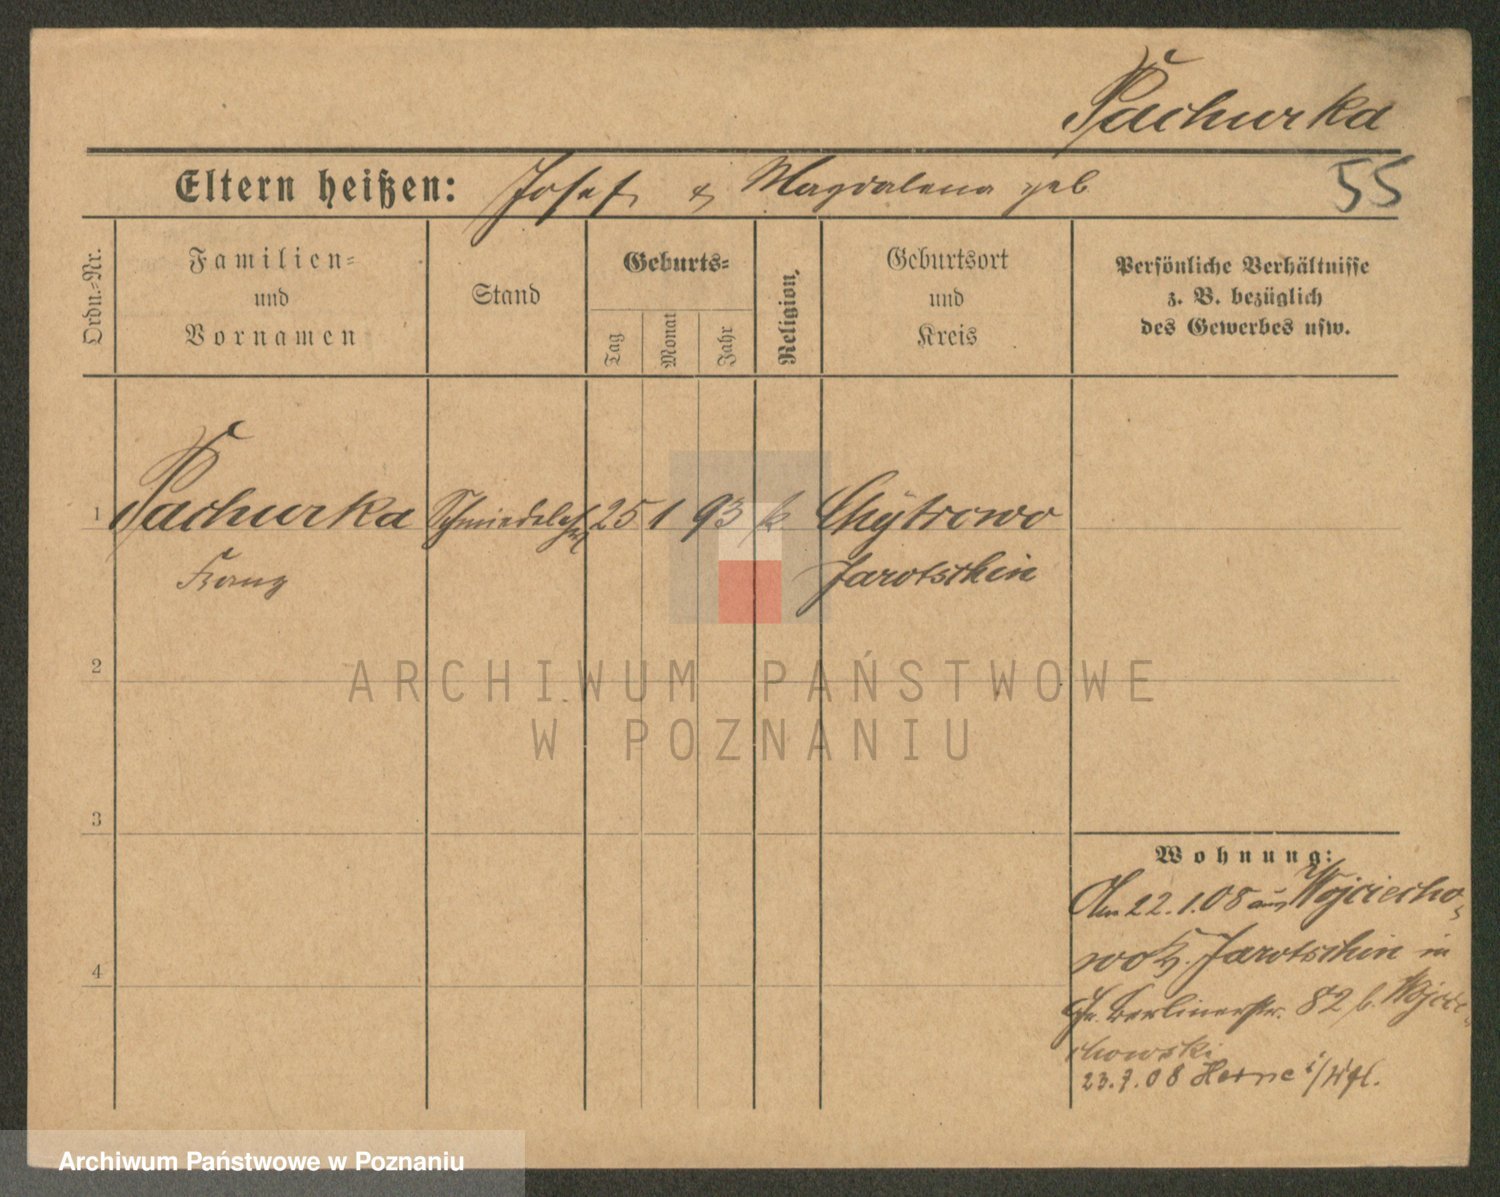 Pachurka
Eltern heißen: Josef & Magdalena geb.
55
Ordn.-Nr.
Familien-
und
Vornamen
Stand
Geburts-
Tag
Monat
Jahr
Religion.
Geburtsort
und
Kreis
Persönliche Verhältnisse
z. B. bezüglich
des Gewerbes usw.
1 Pachurka 25 1 93 k Chÿtrowo
Franz Jarotschin
2
3
4
ARCHIWUM PAŃSTWOWE
W POZNANIU
Wohnung:
Am 22.1.08 aus Wojciecho-
wo K. Jarotschin in
Berlinerstr. 82 b. Wojcie-
chowski
23.7.08 Herne i/Wfl.
Archiwum Państwowe w Poznaniu